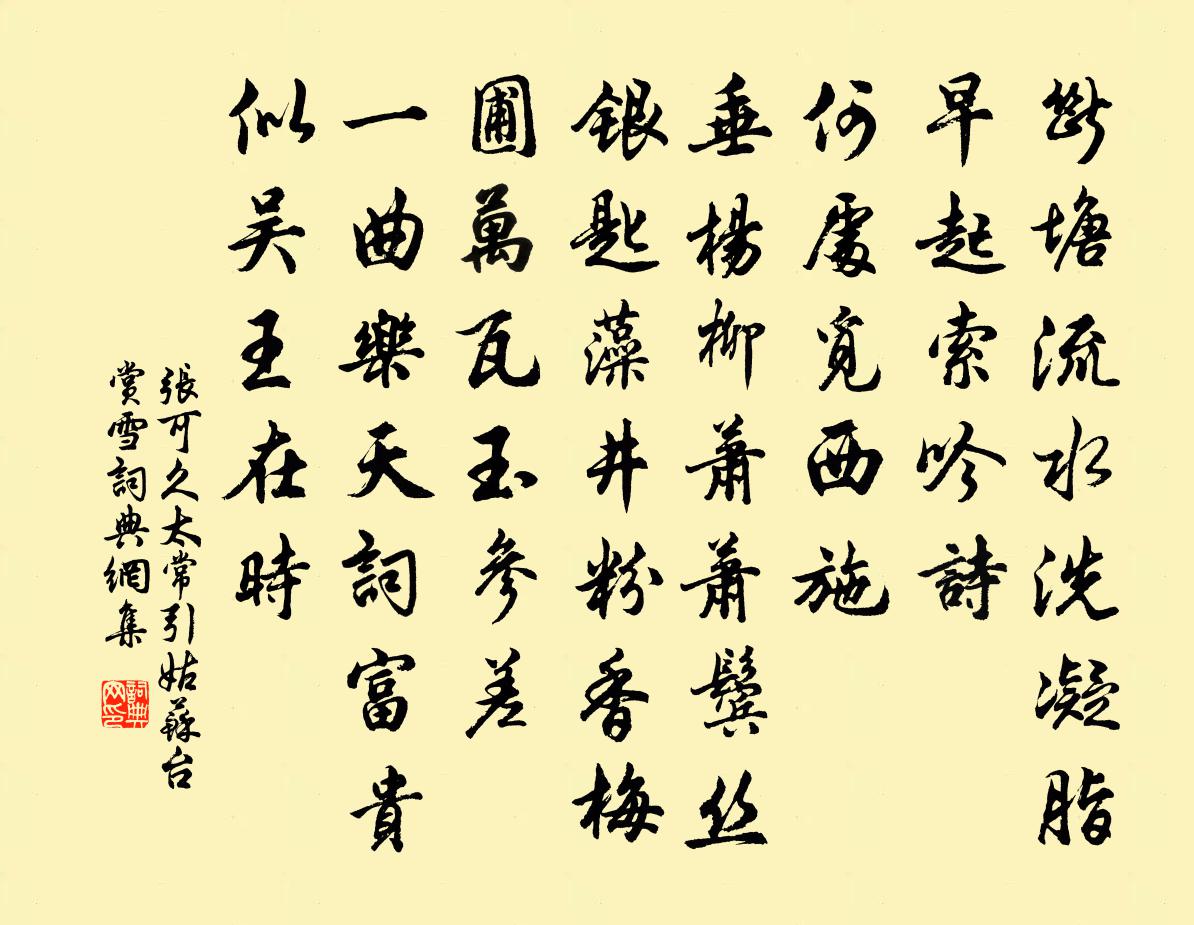 斷塘流水洗凝脂
早起索吟詩
何處覓西施
垂楊柳蕭蕭鬢丝
銀匙藻井粉香梅
圃萬瓦玉參差
一曲樂天詞富貴
似吴王在時
張可久太常引姑蘇台
賞雪詞典網集
詞典
网印